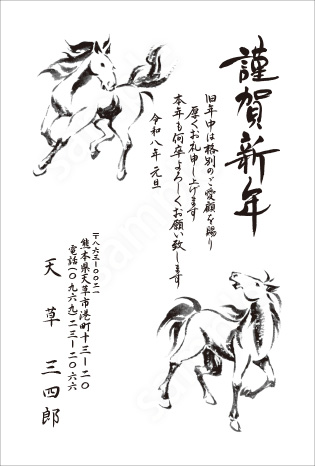 謹賀新年
旧年中は格別のご愛顧を賜り
厚くお礼申し上げます
本年も何卒よろしくお願い致します
令和八年 元旦
〒八六三-〇〇二一
熊本県天草市港町十三-二〇
電話(〇九六九)二三-二〇六六
天草 三四郎